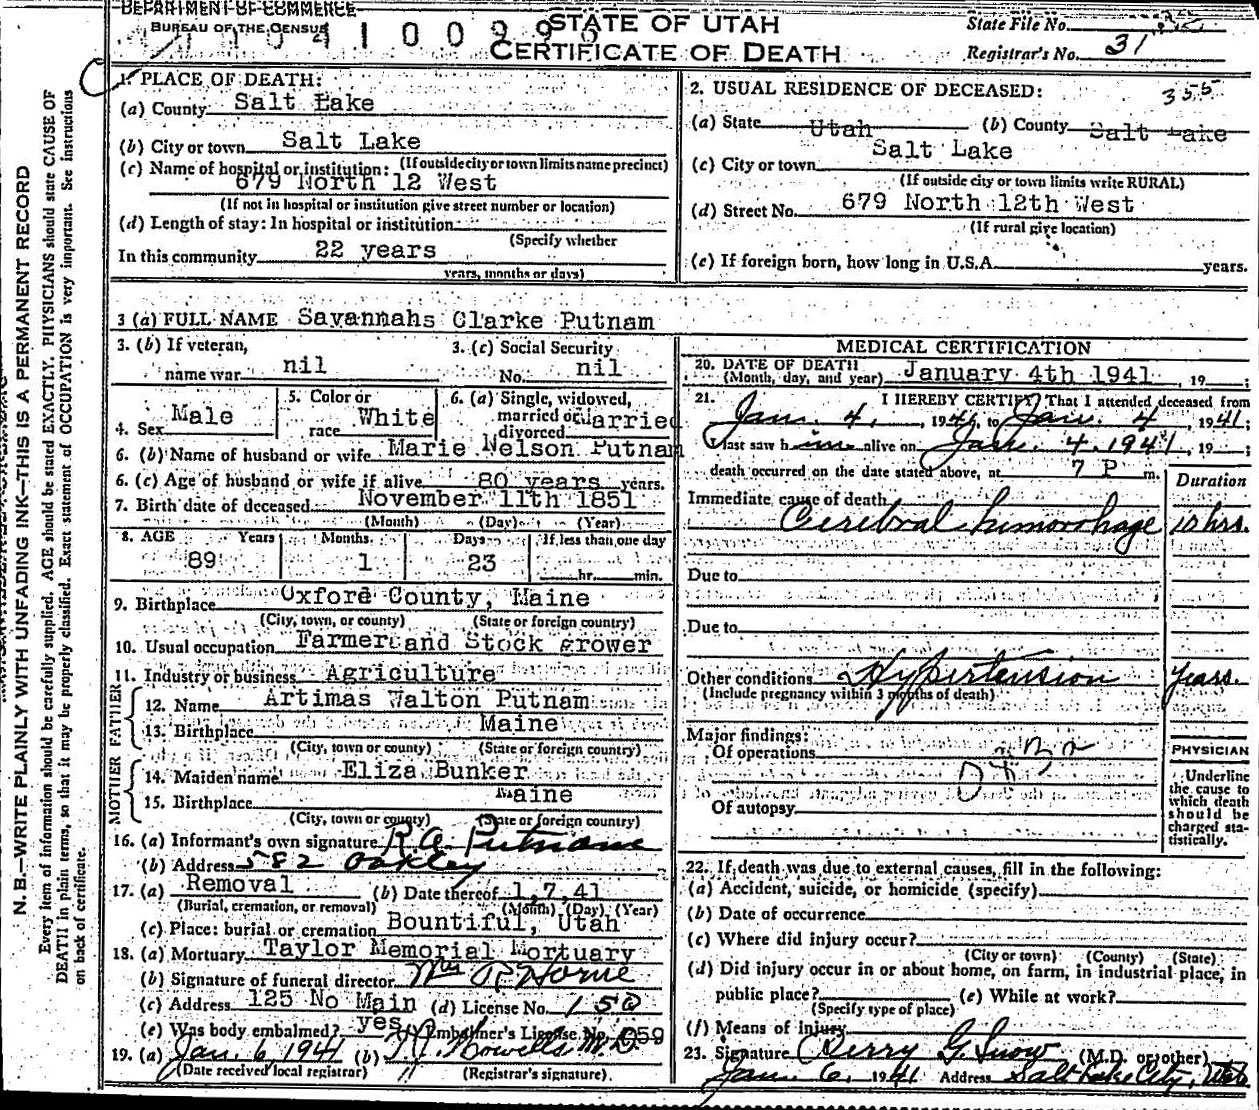 DEPARTMENT OF COMMERCE
BUREAU OF THE CENSUS
STATE OF UTAH
CERTIFICATE OF DEATH
State File No.
Registrar's No. 31
N. B.—WRITE PLAINLY WITH UNFADING INK—THIS IS A PERMANENT RECORD
Every item of information should be carefully supplied. AGE should be stated EXACTLY. PHYSICIANS should state CAUSE OF
DEATH in plain terms, so that it may be properly classified. Exact statement of OCCUPATION is very important. See instructions
on back of certificate.
1. PLACE OF DEATH:
(a) County Salt Lake
(b) City or town Salt Lake
(If outside city or town limits name precinct)
(c) Name of hospital or institution:
679 North 12 West
(If not in hospital or institution give street number or location)
(d) Length of stay: In hospital or institution
(Specify whether
In this community 22 years
years, months or days)
2. USUAL RESIDENCE OF DECEASED: 355
(a) State Utah (b) County Salt Lake
(c) City or town Salt Lake
(If outside city or town limits write RURAL)
(d) Street No. 679 North 12th West
(If rural give location)
(e) If foreign born, how long in U.S.A. years.
3 (a) FULL NAME Savannahs Clarke Putnam
3. (b) If veteran, name war nil
3. (c) Social Security No. nil
4. Sex Male
5. Color or race White
6. (a) Single, widowed, married or divorced Married
6. (b) Name of husband or wife Marie Nelson Putnam
6. (c) Age of husband or wife if alive 80 years years.
7. Birth date of deceased November 11th 1851
(Month) (Day) (Year)
8. AGE Years Months Days If less than one day
89 1 23 hr. min.
9. Birthplace Oxford County, Maine
(City, town, or county) (State or foreign country)
10. Usual occupation Farmer and Stock grower
11. Industry or business Agriculture
FATHER
12. Name Artimas Walton Putnam
13. Birthplace Maine
(City, town or county) (State or foreign country)
MOTHER
14. Maiden name Eliza Bunker
15. Birthplace Maine
(City, town or county) (State or foreign country)
16. (a) Informant's own signature R. A. Putnam
(b) Address 582 Oakley
17. (a) Removal (b) Date thereof 1,7,41
(Burial, cremation, or removal) (Month) (Day) (Year)
(c) Place: burial or cremation Bountiful, Utah
18. (a) Mortuary Taylor Memorial Mortuary
(b) Signature of funeral director
(c) Address 125 No Main (d) License No. 150
(e) Was body embalmed? yes Embalmer's License No.
19. (a) Jan. 6, 1941 (b) Howells M.D.
(Date received local registrar) (Registrar's signature)
MEDICAL CERTIFICATION
20. DATE OF DEATH
(Month, day, and year) January 4th 1941, 19 ;
21. I HEREBY CERTIFY That I attended deceased from
Jan. 4, 1941, to Jan. 4, 1941;
I last saw him alive on Jan. 4. 1941, 19 ;
death occurred on the date stated above, at 7 P m.
Duration
Immediate cause of death
Cerebral hemorrhage 10 hrs.
Due to
Due to
Other conditions Hypertension years.
(Include pregnancy within 3 months of death)
Major findings:
Of operations
Of autopsy
PHYSICIAN
Underline
the cause to
which death
should be
charged sta-
tistically.
22. If death was due to external causes, fill in the following:
(a) Accident, suicide, or homicide (specify)
(b) Date of occurrence
(c) Where did injury occur?
(City or town) (County) (State)
(d) Did injury occur in or about home, on farm, in industrial place, in
public place? (e) While at work?
(Specify type of place)
(f) Means of Injury
23. Signature G. Snow (M.D. or other)
Jan. 6, 1941 Address Salt Lake City, Utah